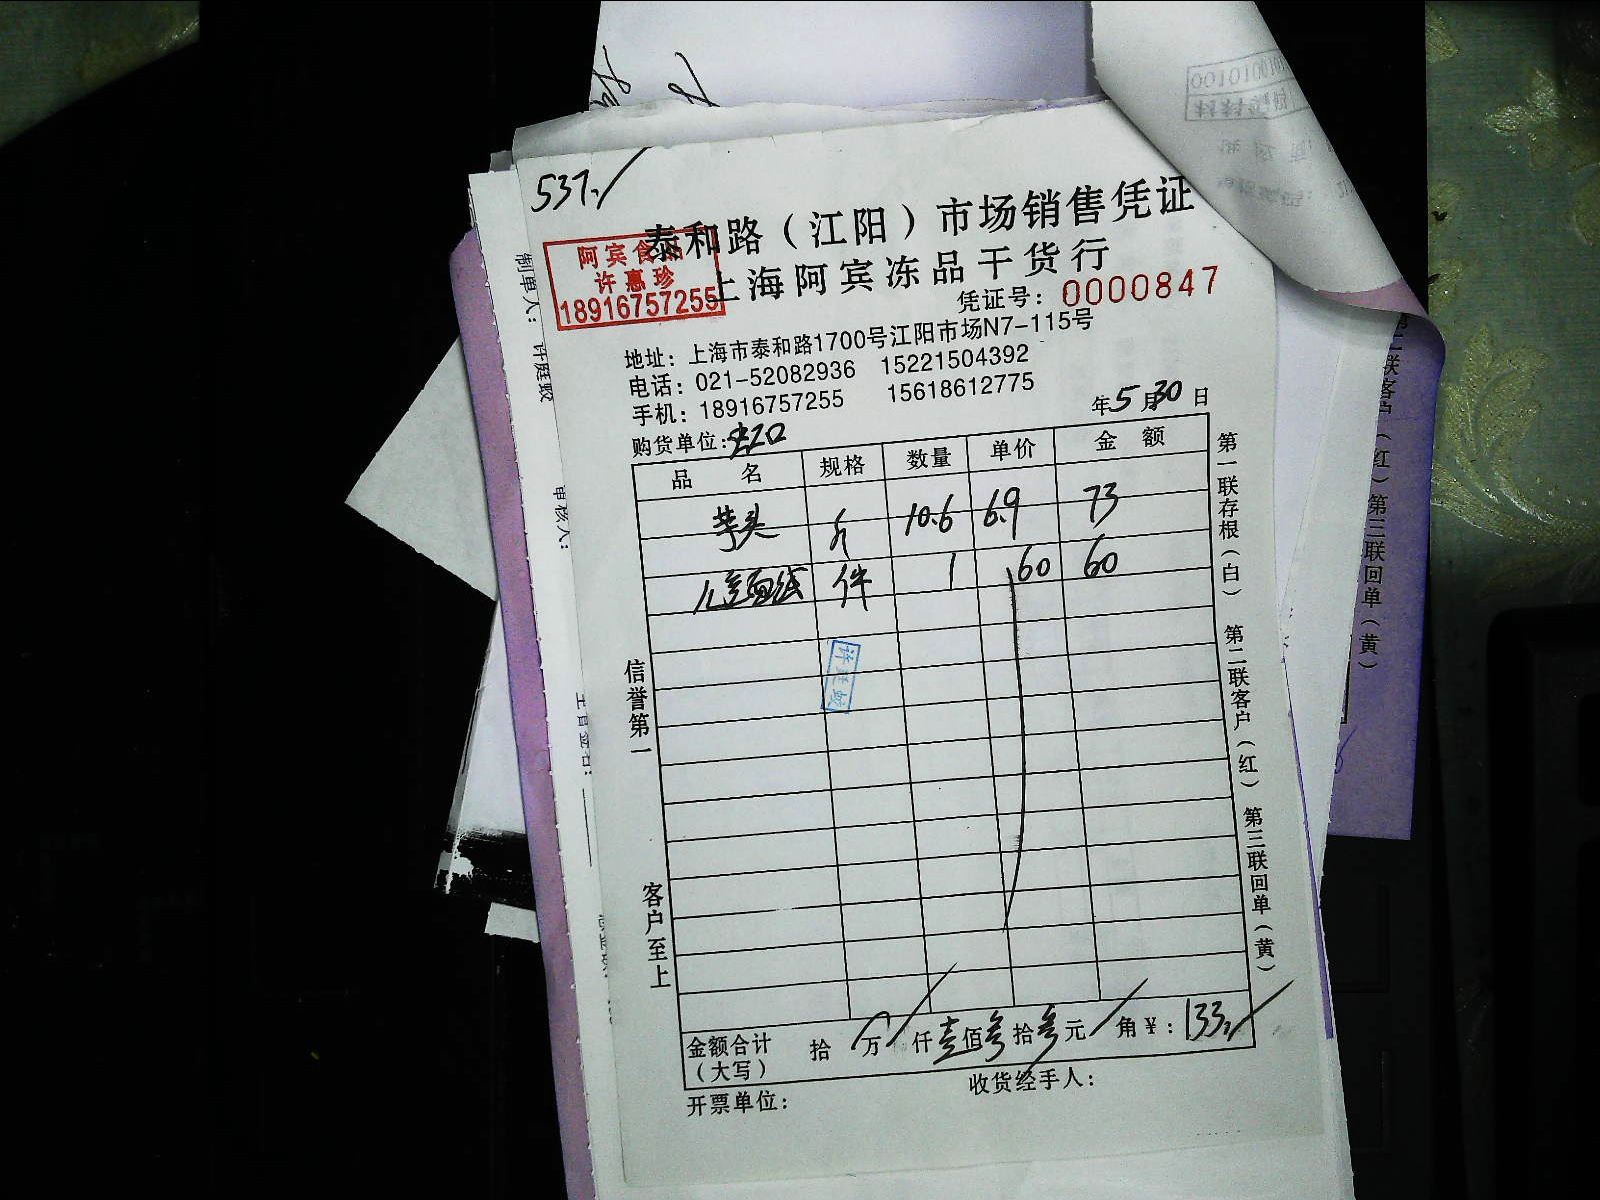 537
泰和路（江阳）市场销售凭证
上海阿宾冻品干货行
阿宾食品
许惠珍
18916757255
凭证号：0000847
地址：上海市泰和路1700号江阳市场N7-115号
电话：021-52082936 15221504392
手机：18916757255 15618612775
年5月30日
购货单位：
品名 规格 数量 单价 金额
芋头 斤 10.6 6.9 73
面线 件 1 60 60
金额合计（大写） 拾 万 仟壹佰叁拾叁元 角￥：133
开票单位： 收货经手人：
信誉第一
客户至上
第一联存根（白） 第二联客户（红） 第三联回单（黄）
制单人：
审核人：
（红）第三联回单（黄）